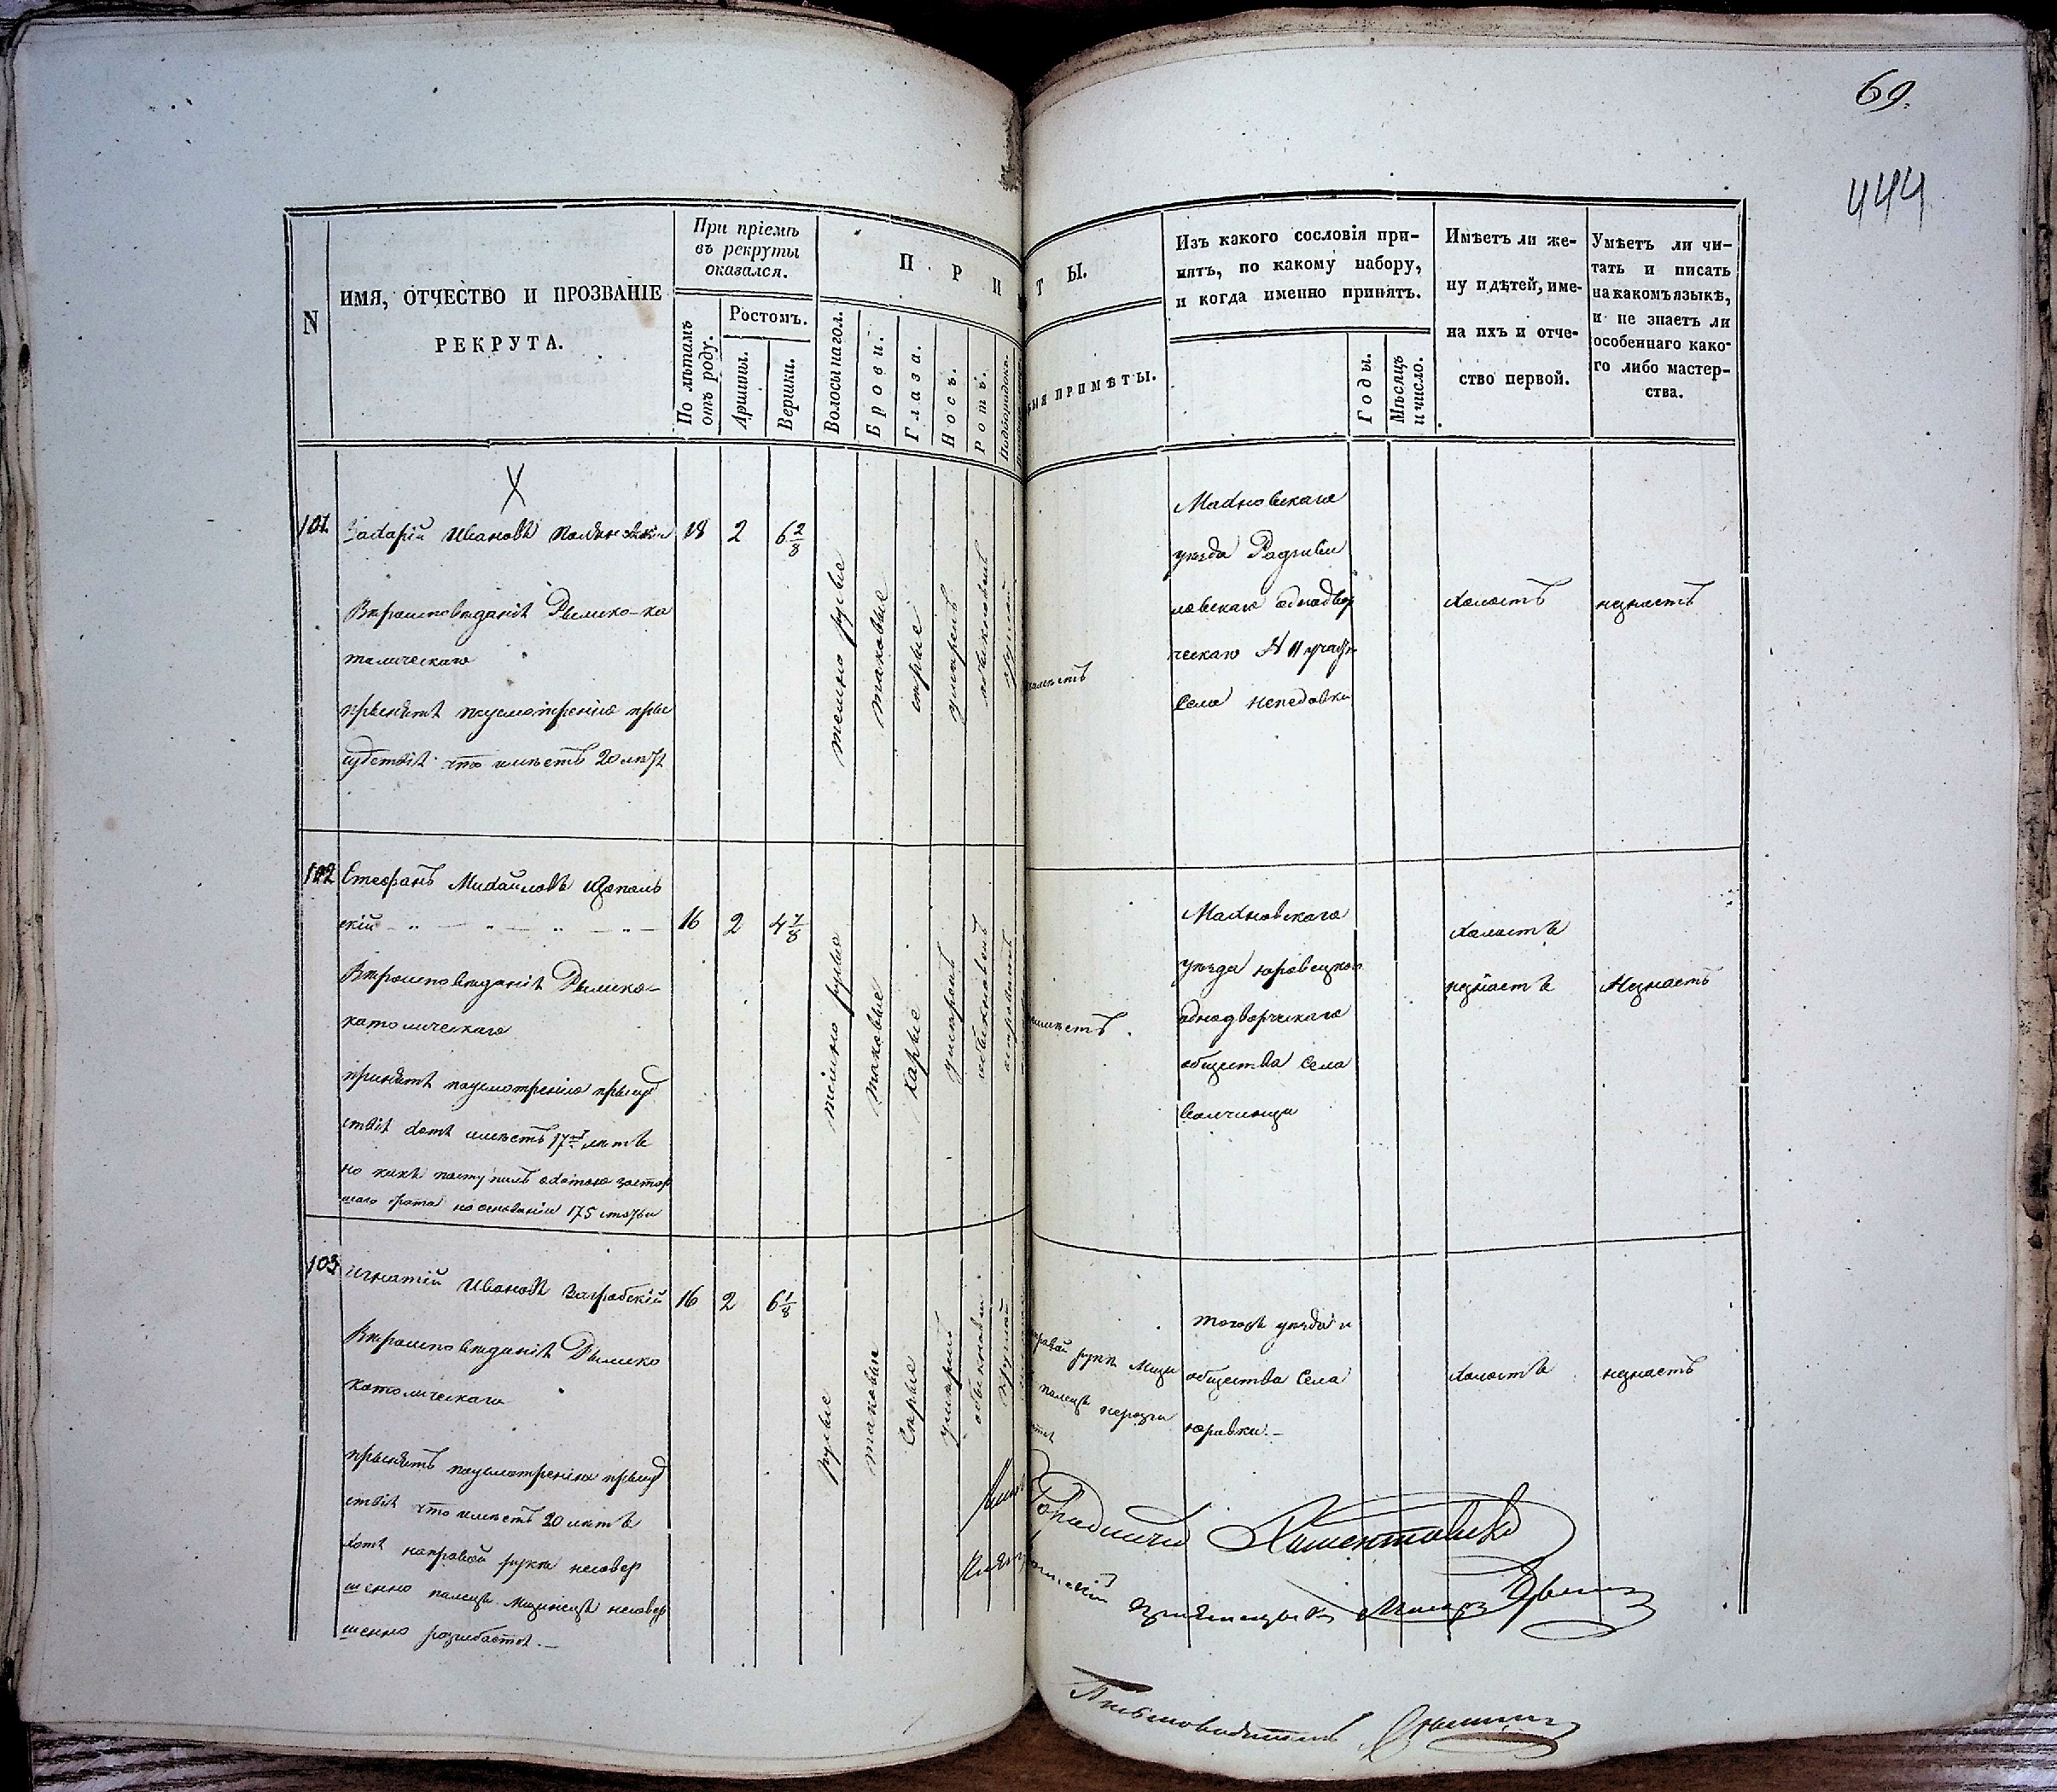 69.
444
N
ИМЯ, ОТЧЕСТВО И ПРОЗВАНІЕ
РЕКРУТА.
При пріемѣ
въ рекруты
оказался.
По лѣтамъ
отъ роду.
Ростомъ.
Аршины.
Вершки.
П Р И
Волосы на гол.
Брови.
Глаза.
Носъ.
Ротъ.
Подбородокъ.
ТЫ.
ЫЯ ПРИМѢТЫ.
Изъ какого сословія при-
нятъ, по какому набору,
и когда именно принятъ.
Годы.
Мѣсяцъ
и число.
Имѣетъ ли же-
ну и дѣтей, име-
на ихъ и отче-
ство первой.
Умѣетъ ли чи-
тать и писать
на какомъ языкѣ,
и не знаетъ ли
особеннаго како-
го либо мастер-
ства.
101
Захарій Ивановъ
Вѣроисповѣданія Римско-ка
толическаго
принятъ поусмотренію при
судствія что имѣетъ 20 лѣтъ
18
2
6 2/8
темно русые
таковые
серые
умѣренъ
обыкновенъ
круглый
Махновскаго
уѣзда Радзиви
ловскаго однодвор
ческаго № 11 участк
Села
холостъ
незнаетъ
102
Стефанъ Михайловъ
скій
Вѣроисповѣданія Римско-
католическаго
принятъ поусмотренію присуд
ствія хотя имѣетъ 17 лѣтъ
но какъ поступилъ охотою застар
шаго брата на основаніи 175 статьи
16
2
4 7/8
темно русые
таковые
карые
умѣренъ
обыкновенъ
Махновскаго
уѣзда юровецкого
однодворческаго
общества Села
холостъ
незнаетъ
Незнаетъ
103
Игнатій Ивановъ Загробскій
Вѣроисповѣданія Римско
католическаго
принятъ поусмотренію присуд
ствія что имѣетъ 20 лѣтъ
хотя направой рукѣ несовер
шенно палецъ Мизинецъ несовер
шенно розгибается.
16
2
6 1/8
русые
таковые
Серые
умѣренъ
обыкновен
круглый
правой рукѣ Мизи
палецъ нерозги
Тогожъ уѣзда и
общества Села
юровки.
холостъ
незнаетъ
Письмоводитель